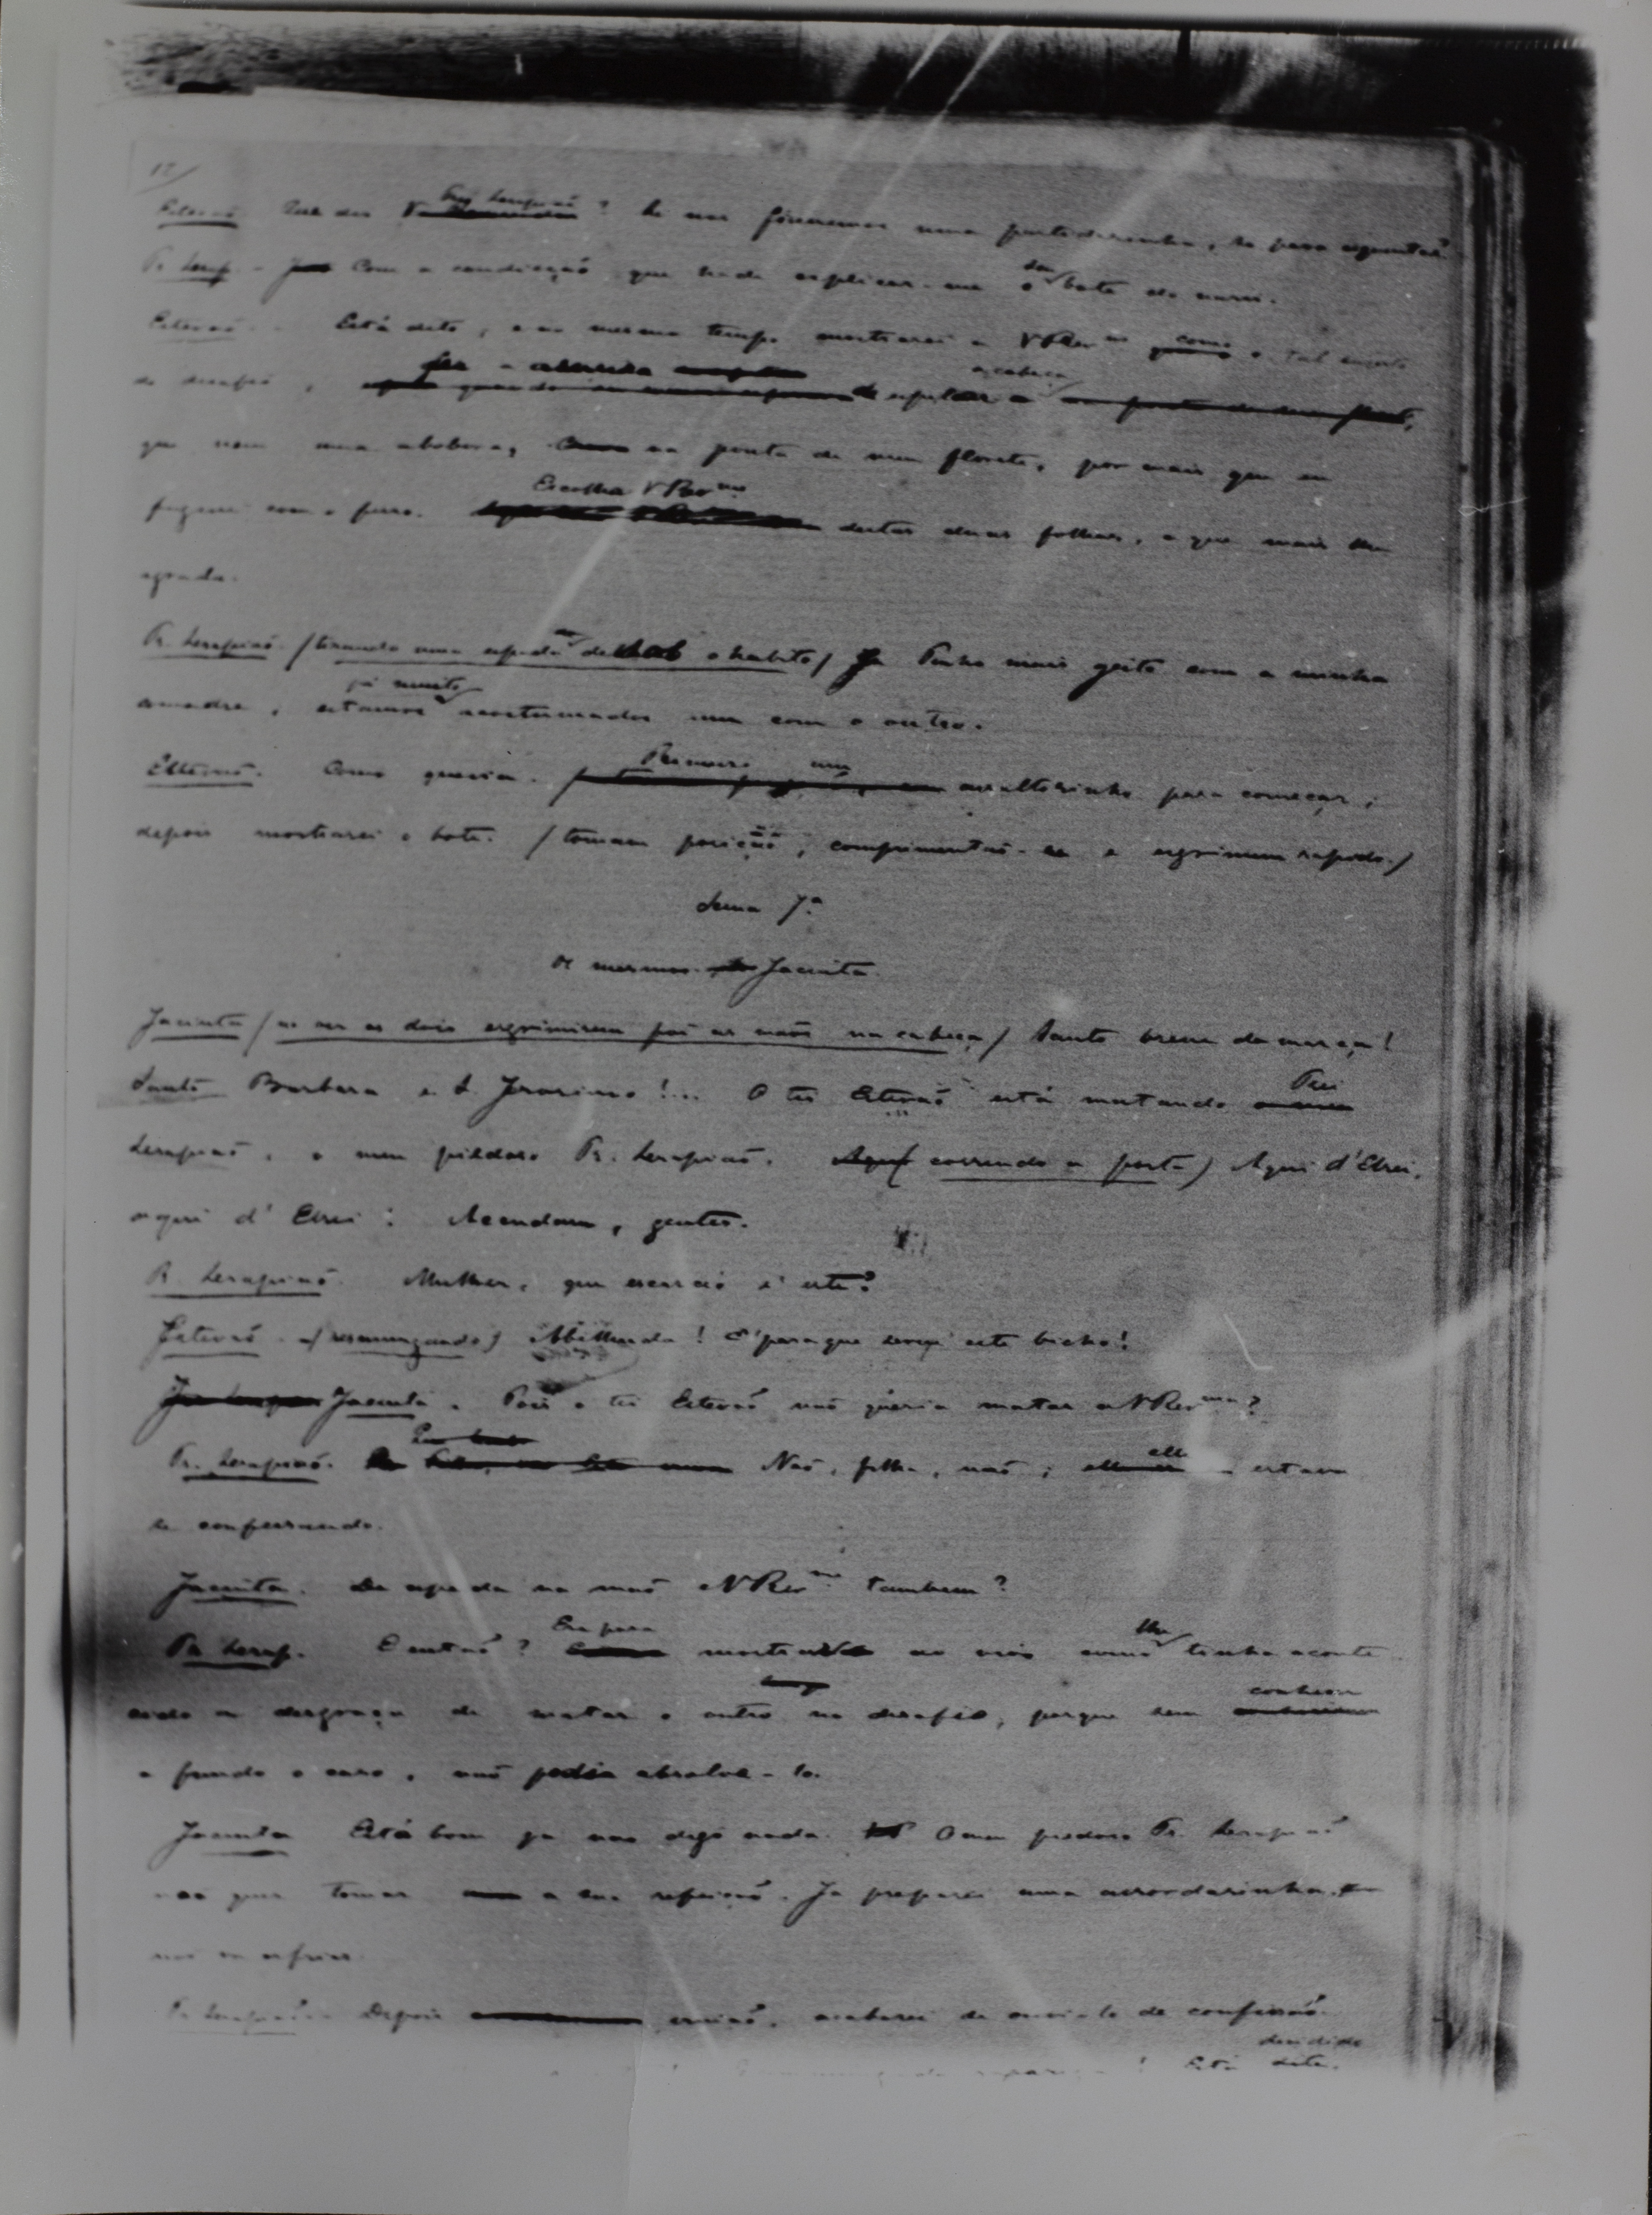 12
Estevaõ Que diz Frey Serapiaõ? Se nos fizessemos uma partidazinha, para
Fr. Serap. - Com a condicçaõ que ha de explicar-me o seu bote de
Estevaõ - Está dito, e ao mesmo tempo mostrarei a V Revma como o tal sugeito
do desafio, espetar a cabeça
que nem uma abobora, na ponta de meu florete, por mais que eu
com o ferro. Escolha V Revma destas duas folhas, a que mais lhe
agrada.
Fr. Serapiaõ. (tirando uma espada de o habito) Tenho mais geito com a minha
comadre, estamos já muito acostumados um com o outro.
Estevaõ. Como queira. Primeiro um assaltozinho para começar;
depois mostrarei o bote. (tomam posiçaõ, comprimentaõ-se e esgrimem rapido.)
Scena 7ª
Os mesmos. Jacinta.
Jacinta (ao ver os dois esgrimirem põe as mãos na cabeça) Santo breve da marca!
Santa Barbara e S. Jeronimo!... O tio Estevaõ está matando Frei
Serapiaõ, o meu piedoso Fr. Serapiaõ. (correndo a porta) Aqui d'Elrei,
aqui d'Elrei! Accudam, gentes.
Fr Serapiaõ. Mulher, que escarceo é este?
Estevaõ - (resmungando) Abelhuda! E' para que serve este bicho!
Jacinta. Pois o tio Estevaõ naõ queria matar a V Revma?
Fr. Serapiaõ. Naõ, filha, naõ; elle estava
se confessando.
Jacinta. De espada na maõ e V Revma tambem?
Fr Serap. E entaõ? Era para mostrar ao vivo como lhe tinha aconte
cido a desgraça de matar o outro no desafio, porque sem conhecer
a fundo o caso, naõ podia absolve-lo.
Jacinta Está bom ja naõ digo nada. O meu piedoso Fr. Serapiaõ
naõ quer tomar a sua refeiçaõ. Ja preparei uma assordazinha.
Fr Serapiaõ. Depois irmaõ, acabarei de ouvi-lo de confissaõ.
Está decidido
dito.